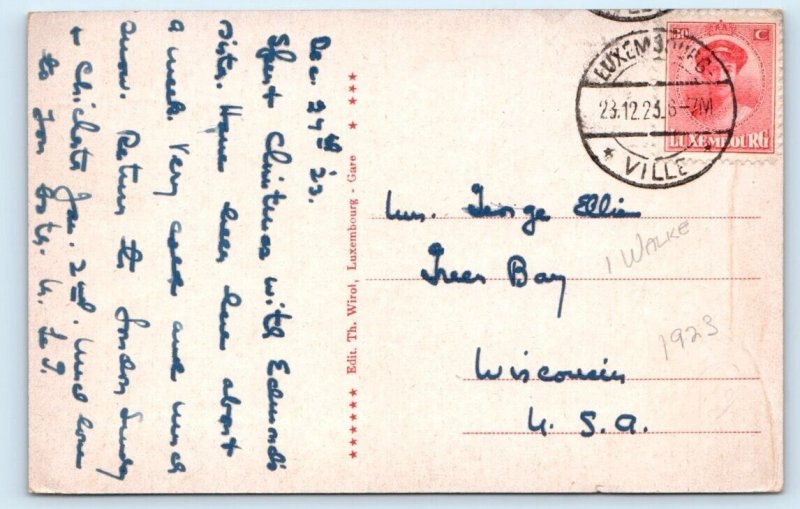 Dec. 27th '23.
Spent Christmas with Edmond's
sister. Have been here about
a week. Very cold and much
snow. Return to London Sunday
+ Chichester Jan. 2nd. Much love
to you both. U. Le G.
Edit. Th. Wirol, Luxembourg - Gare
LUXEMBOURG-
23.12.23. 6-7M
VILLE
50 C
LUXEMBOURG
Mrs. George Ellis
Green Bay
Wisconsin
U. S. A.
1 WALKE
1923